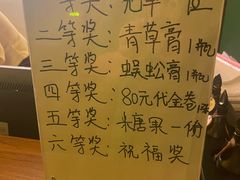 等奖：免单一位
二等奖：青草膏1瓶
三等奖：蜈蚣膏1瓶
四等奖：80元代金卷
五等奖：糖果一份
六等奖：祝福奖